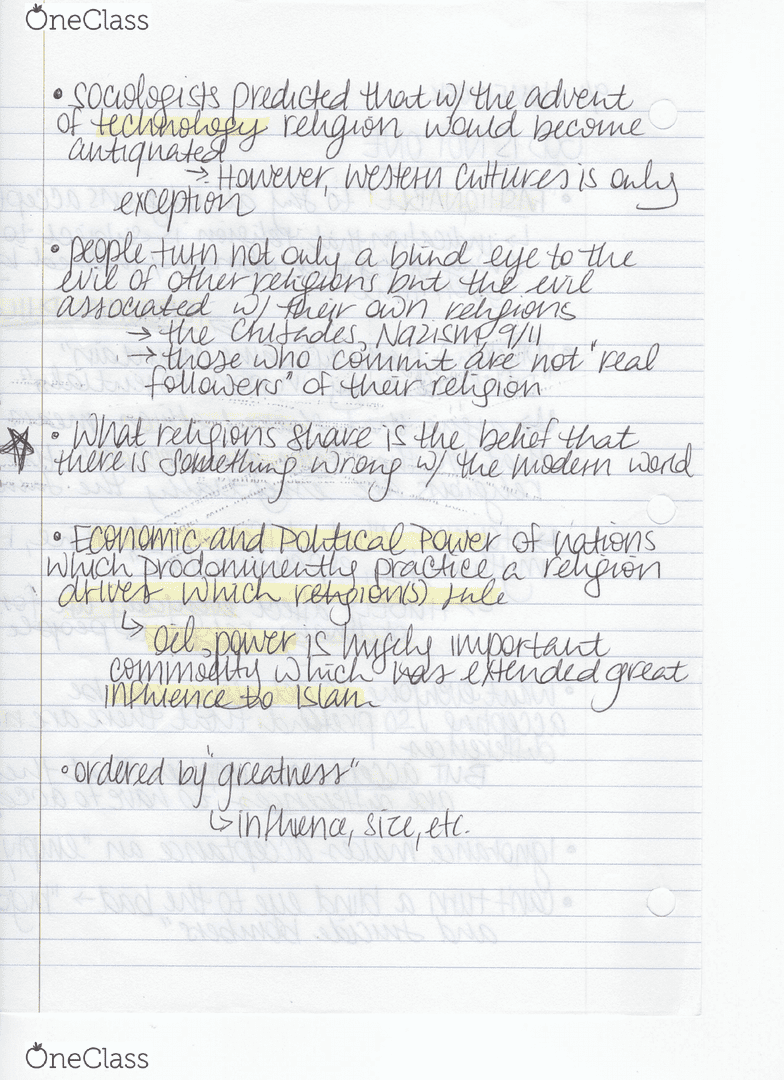 OneClass
• sociologists predicted that w/ the advent
of technology religion would become
antiquated
→ However, western cultures is only
exception
• people turn not only a blind eye to the
evil of other religions but the evil
associated w/ their own religions
→ the Crusades, Nazism, 9/11
→ those who commit are not "real
followers" of their religion
• What religions share is the belief that
there is something wrong w/ the modern world
• Economic and Political Power of nations
which predominently practice a religion
drives which religion(s) rule
↳ oil, power is hugely important
commodity which has extended great
influence to Islam
• ordered by "greatness"
↳ influence, size, etc.
OneClass